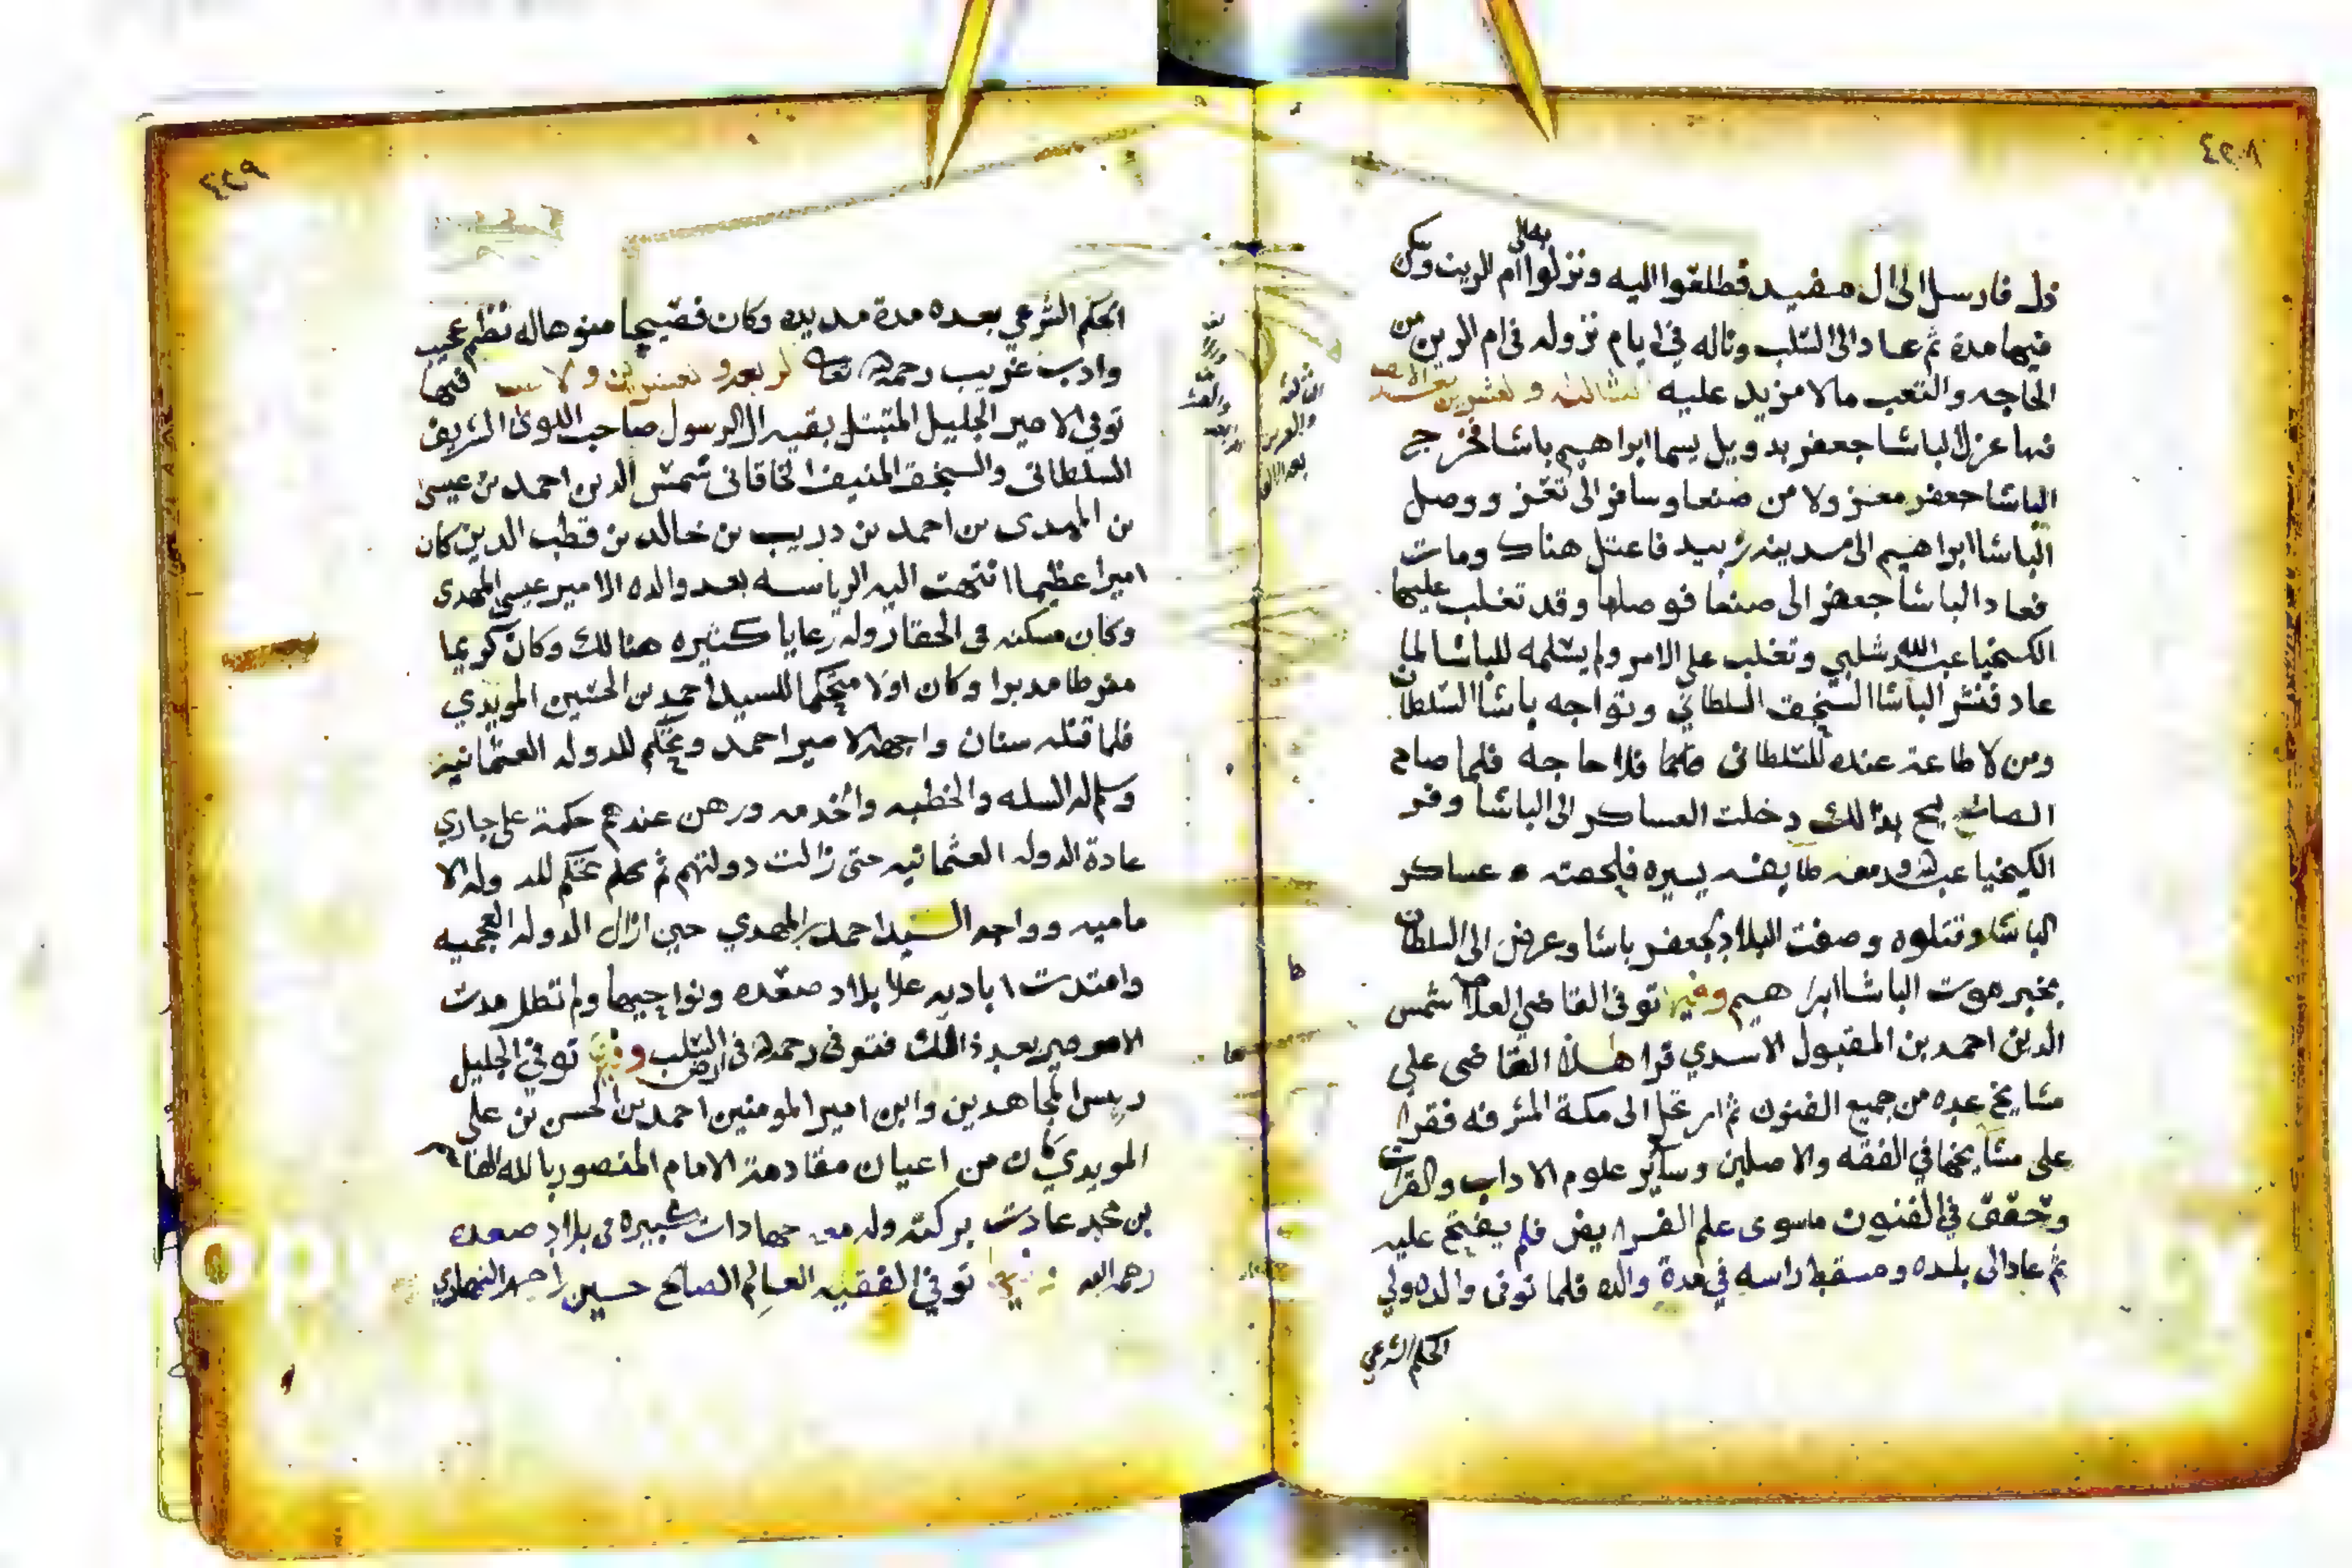 ٤٢٨
ذلك فارسل الى ال مفيد فطلعوا اليه ونزلوا الى ام الرين وسكن
فيها مدة ثم عاد الى السلب وناله في ايام نزوله في ام الرين من
الحاجه والتعب مالا مزيد عليه الثالثه والعشرين بعد الالف سنه
فيها عزل الباشا جعفر بدويل يسما ابراهيم باشا فخرج
الباشا جعفر معزولا من صنعا وسافر الى تعز ووصل
الباشا ابراهيم الى مدينه زبيد فاعتل هناك ومات
فعاد الباشا جعفر الى صنعا فوصلها وقد تغلب عليها
الكيخيا عبدالله شلبي وتغلب على الامر ولم يسلمه للباشا لما ان
عاد فنشر الباشا السنجق السلطاني وتواجه باشا السلطان
ومن لا طاعة عنده للسلطان فلا حاجه فلما صاح
الصائح بذالك دخلت العساكر الى الباشا وفر
الكيخيا عبدالله ومعه طايفه يسيره فلحقته عساكر
الباشا وقتلوه وصفت البلاد لجعفر باشا وعرض الى السلطان
بخبر موت الباشا ابراهيم وفيها توفى القاضي العلامه شمس
الدين احمد بن المقبول الاسدي قرا هذا القاضى على
مشايخ عده من جميع الفنون ثم ارتحل الى مكة المشرفه فقرا
على مشايخها في الفقه والاصلين وساير علوم الاداب والقرات
وحقق في الفنون ماسوى علم الفرايض فلم يفتح عليه
ثم عاد الى بلده ومسقط راسه في مدة والده فلما توفى والده ولي
الحكم الشرعي
٤٢٩
الحكم الشرعي بعده مدة مديده وكان فقيها منوها له نظم عجيب
وادب غريب رحمه الله تعالى فيها
توفي الامير الجليل المتبتل بقيه ال الرسول صاحب اللوى الشريف
السلطانى والسنجق المنيف الخاقانى شمس الدين احمد بن عيسى
بن المهدى بن احمد بن دريب بن خالد بن قطب الدين كان
اميرا عظيما انتهت اليه الرياسه بعد والده الامير عيسى المهدى
وكان مسكنه فى الحقار وله رعايا كثيره هنالك وكان كريما
مفرطا مدبرا وكان اولا متحكما للسيد احمد بن الحسين المويدي
فلما قتله سنان واجهه الامير احمد وتحكم للدوله العثمانيه
وسلم له السله والخطبه والخدمه ورهن عندهم حكمة على جاري
عادة الدوله العثمانيه حتى زالت دولتهم ثم تحكم للدوله الا
ماميه وواجه السيد احمد المهدي حين ازال الدوله العجميه
وامتدت اياديه على بلاد صعده ونواحيها ولم تطل مدت
الامير بعد ذالك فتوفى رحمه الله فى ارض السلب وفيها توفي الجليل
ريس المجاهدين وابن امير المومنين احمد بن الحسن بن على
المويدي كان من اعيان مقادمة الامام المنصور بالله القاسم
بن محمد عادت بركته وله معه جهادات كبيره فى بلاد صعده
رحمه الله وفيها توفي الفقيه العالم الصالح حسين